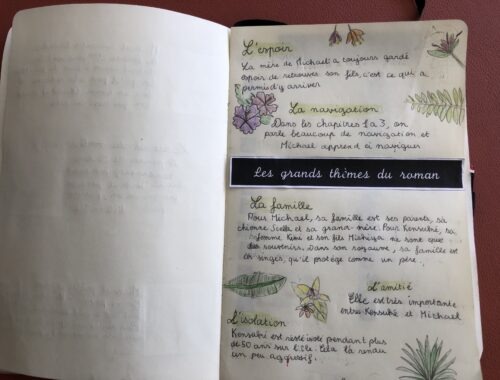 L'espoir
La mère de Michael a toujours gardé
espoir de retrouver son fils, c'est ce qui a
permis d'y arriver
La navigation
Dans les chapitres 1 à 3, on
parle beaucoup de navigation et
Michael apprend à naviguer
Les grands thèmes du roman
La famille
Pour Michael, sa famille est ses parents, sa
chienne Stella et sa grand-mère. Pour Kensuké, sa
femme Kimi et son fils Michiya ne sont que
des souvenirs. Dans son royaume, sa famille est
les singes, qu'il protège comme un père.
L'amitié
Elle est très importante
entre Kensuké et Michael
L'isolation
Kensuké est resté isolé pendant plus
de 50 ans sur l'île. Cela l'a rendu
un peu aggressif.